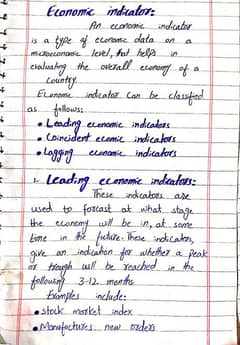 Economic indicator:-
An economic indicator
is a type of economic data on a
microeconomic level, that helps in
evaluating the overall economy of a
country.
Economic indicator can be classified
as follows:
• Leading economic indicators
• Coincident ecomic indicators
• Lagging economic indicators
1. Leading economic indicators:-
These indicators are
used to forcast at what stage
the economy will be in, at some
time in the future. These indicators,
give an indication for whether a peak
or trough will be reached in the
following 3-12 months.
Examples include:
• stock market index
• Manufactures new orders